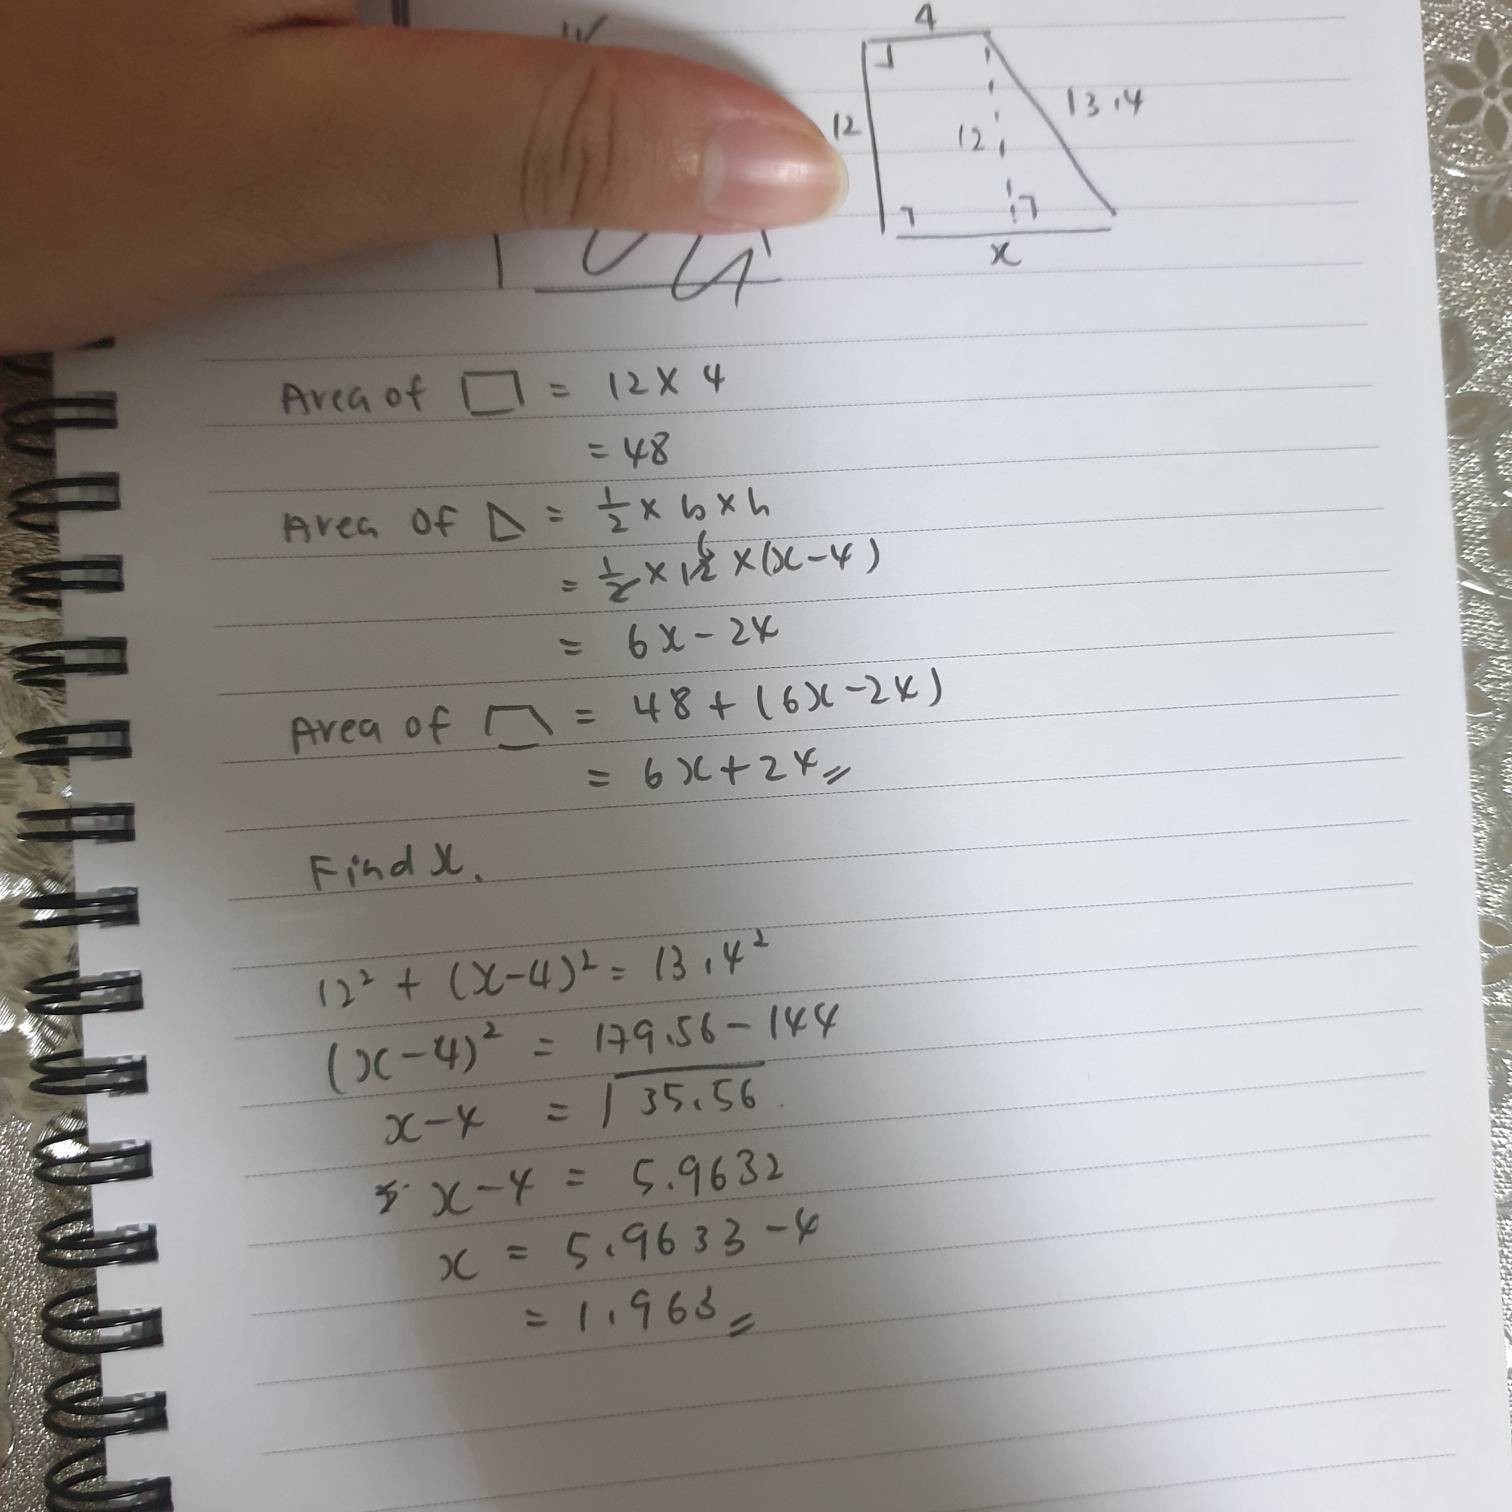 4
12
12
13.4
x
Area of □ = 12 × 4
= 48
Area of △ = 1/2 × b × h
= 1/2 × 12 6 × (x-4)
= 6x - 24
Area of = 48 + (6x-24)
= 6x+24
Find x.
12² + (x-4)² = 13.4²
(x-4)² = 179.56 - 144
x-4 = √35.56
x-4 = 5.9632
x = 5.9633 - 4
= 1.963